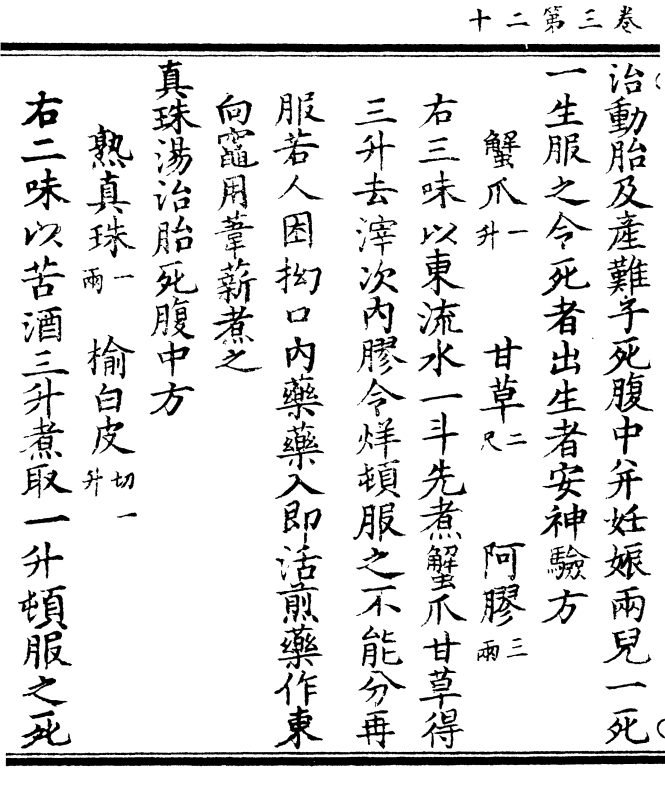 卷三第二十
治動胎及產難子死腹中并妊娠兩兒一死
一生服之令死者出生者安神驗方
蟹爪一升 甘草二尺 阿膠三兩
右三味以東流水一斗先煮蟹爪甘草得
三升去滓次內膠令烊頓服之不能分再
服若人困拗口內藥藥入即活煎藥作東
向竈用葦薪煮之
真珠湯治胎死腹中方
熟真珠一兩 榆白皮切一升
右二味以苦酒三升煮取一升頓服之死